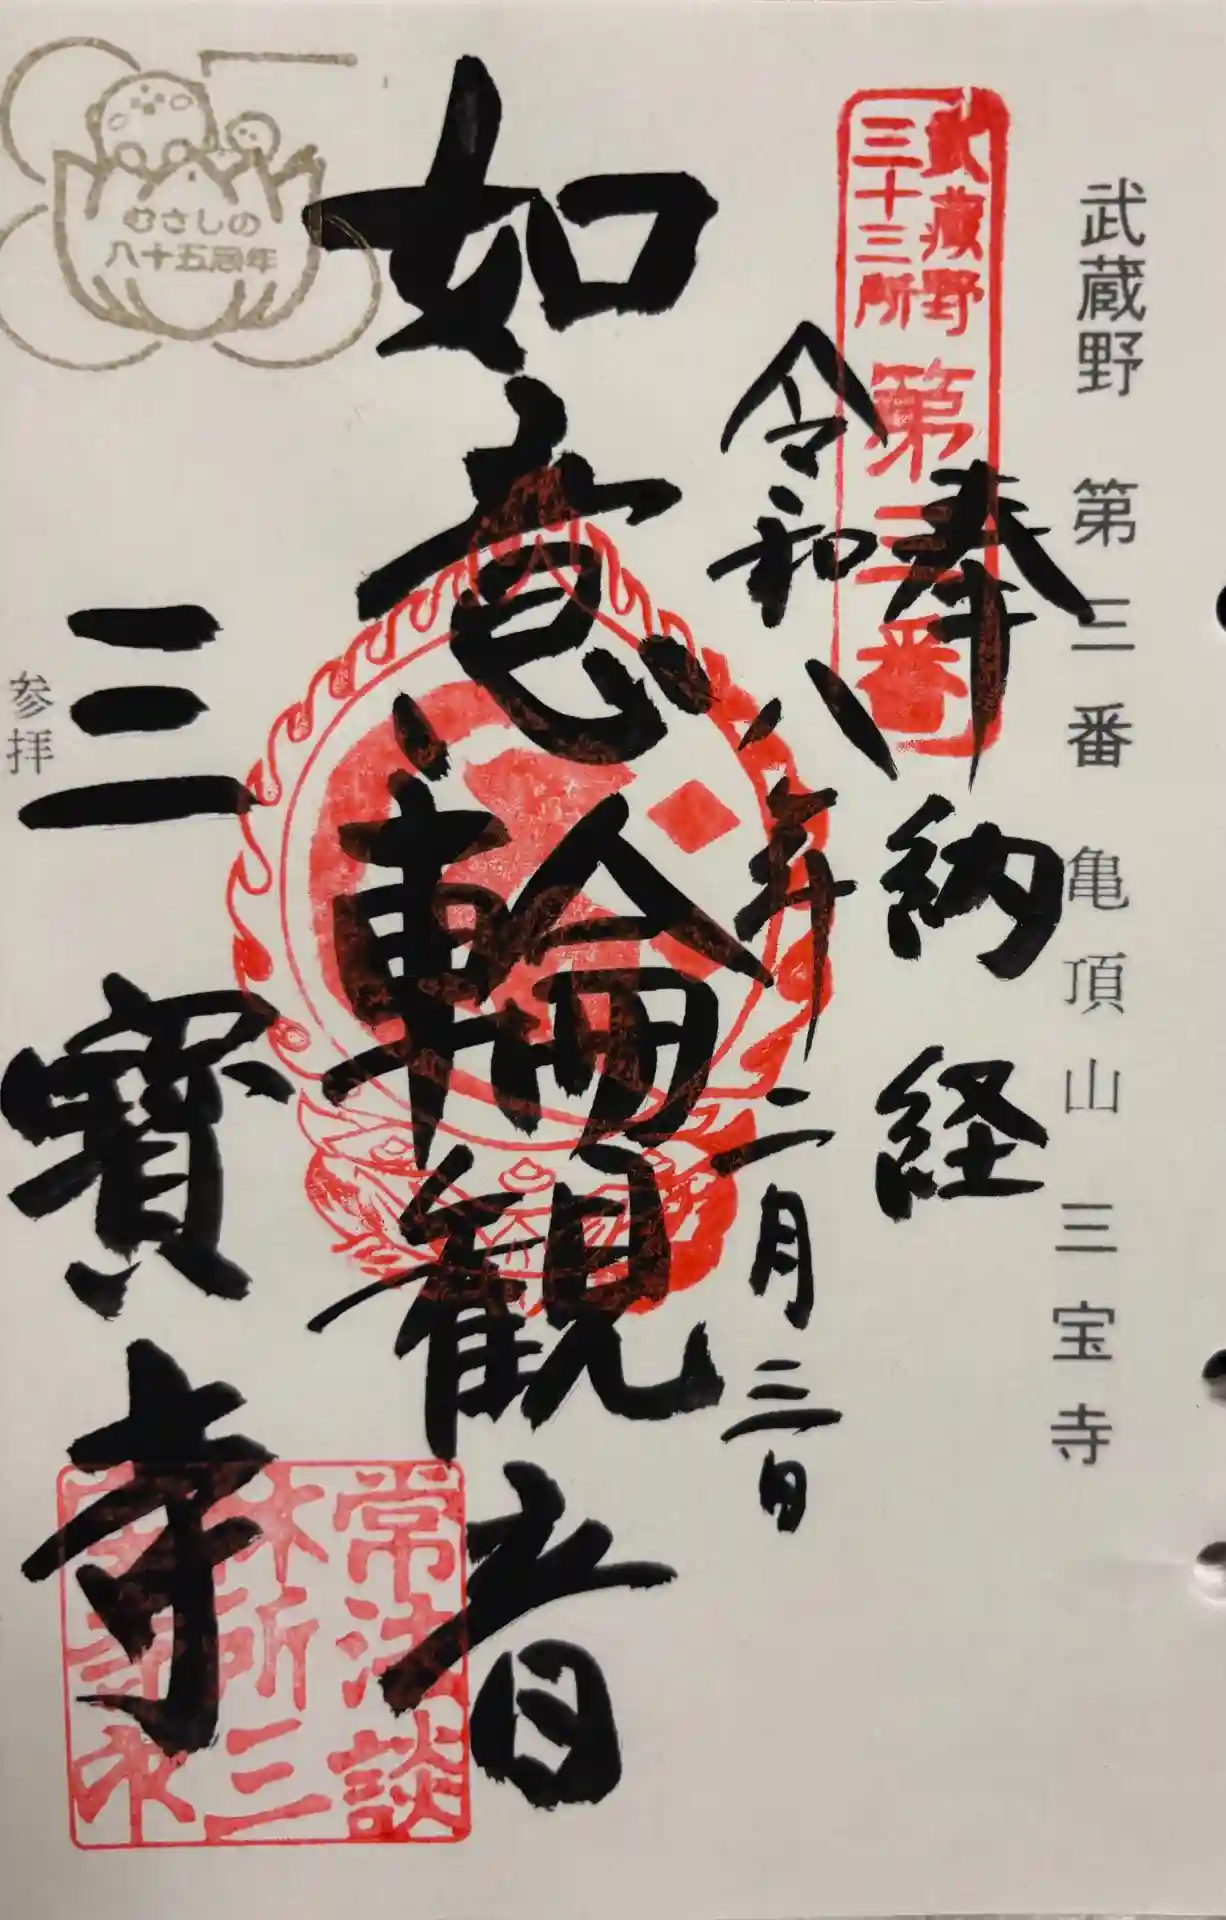 武蔵野 第三番 亀頂山 三宝寺
武蔵野
三十三所
第三番
奉納経
令和八年二月三日
如意輪観音
三寳寺
参拝
むさしの
八十五周年
常法談
林所三
寺印